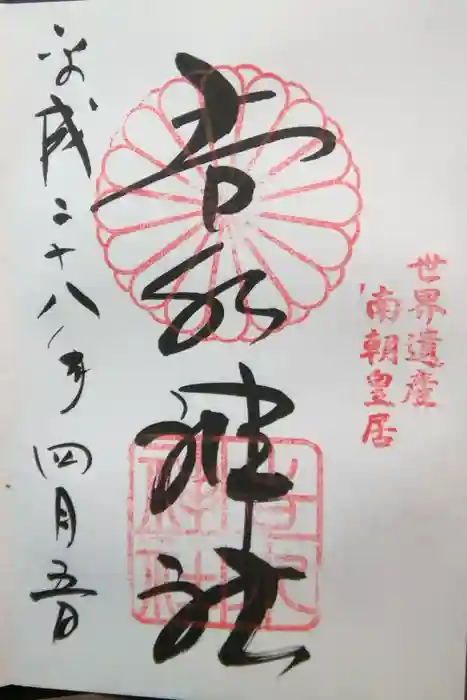 世界遺産
南朝皇居
吉水神社
平成二十八年四月五日
吉水
神社